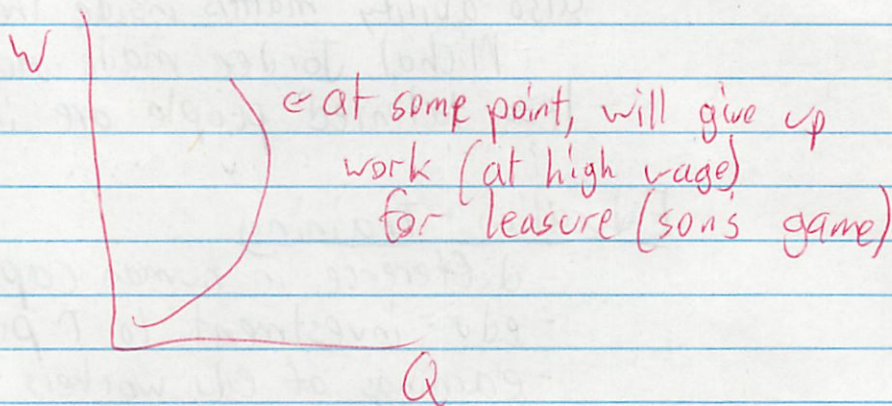 W
← at some point, will give up
work (at high wage)
for leasure (son's game)
Q